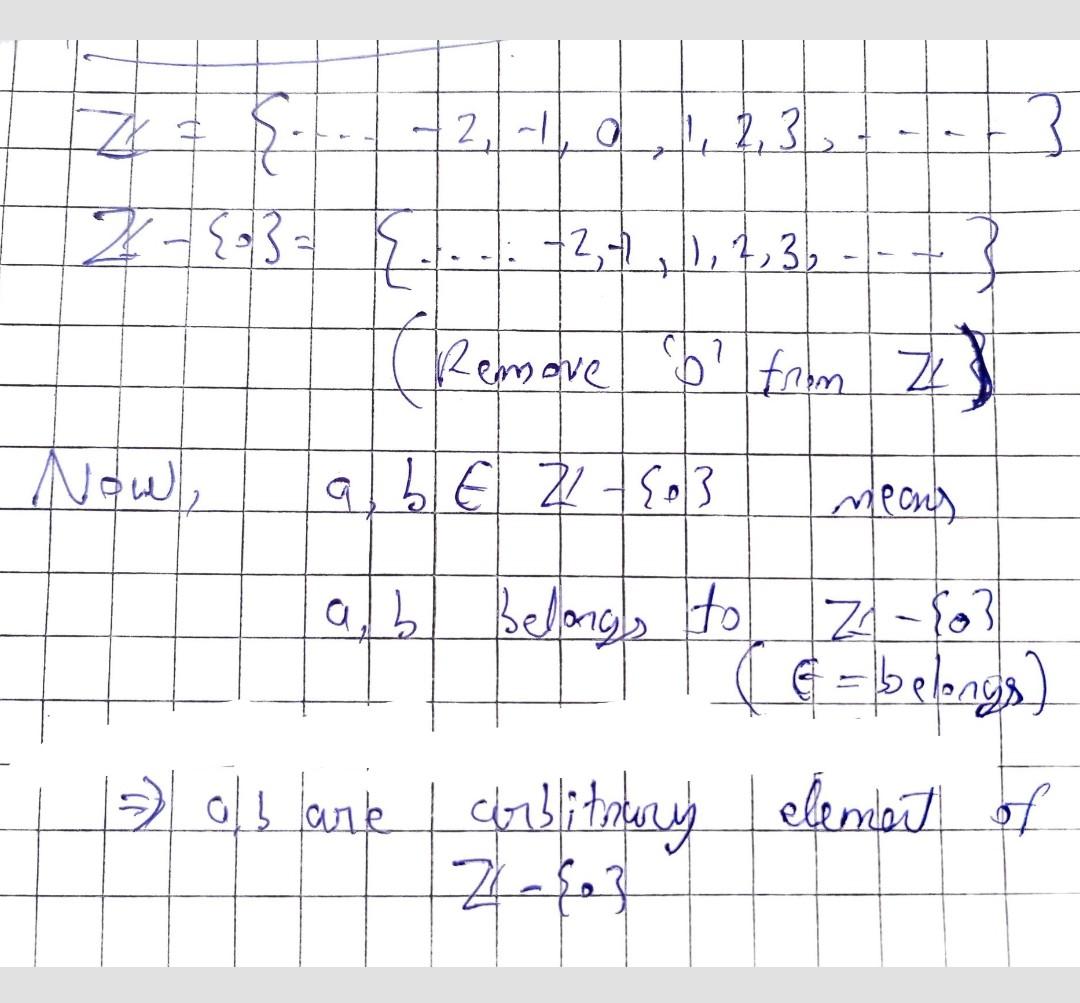 ℤ = {..... -2, -1, 0, 1, 2, 3, ------}
ℤ - {0} = {..... -2, -1, 1, 2, 3, ----}
(Remove '0' from ℤ)
Now, a, b ∈ ℤ - {0} means
a, b belongs to ℤ - {0}
(∈ = belongs)
⇒ a, b are arbitrary element of
ℤ - {0}